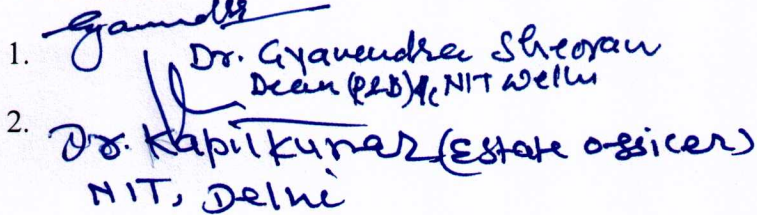 1.
Dr. Gyanendra Sheoran
Dean (P&D) I/c NIT Delhi
2.
Dr. Kapil Kumar (Estate officer)
NIT, Delhi